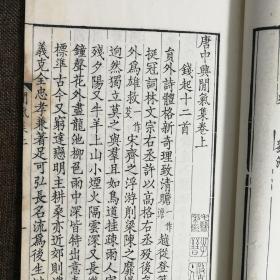 唐中興閒氣集卷上
錢起十二首
員外詩體格新奇理致清贍 作 越從登
挺冠詞林文宗右丞許以高格右丞歿後
外爲雄救 作 宋齊之浮游削梁陳之靡
迥然獨立莫之與羣且如鳥道挂疎雨人
殘夕陽又牛羊上山小煙火隔雲深又長
鐘聲花外盡龍池柳色雨中深皆特出意
標準古今又窮達戀明主耕桑亦近郊則
義克全忠孝兼著足可弘長名流爲後生